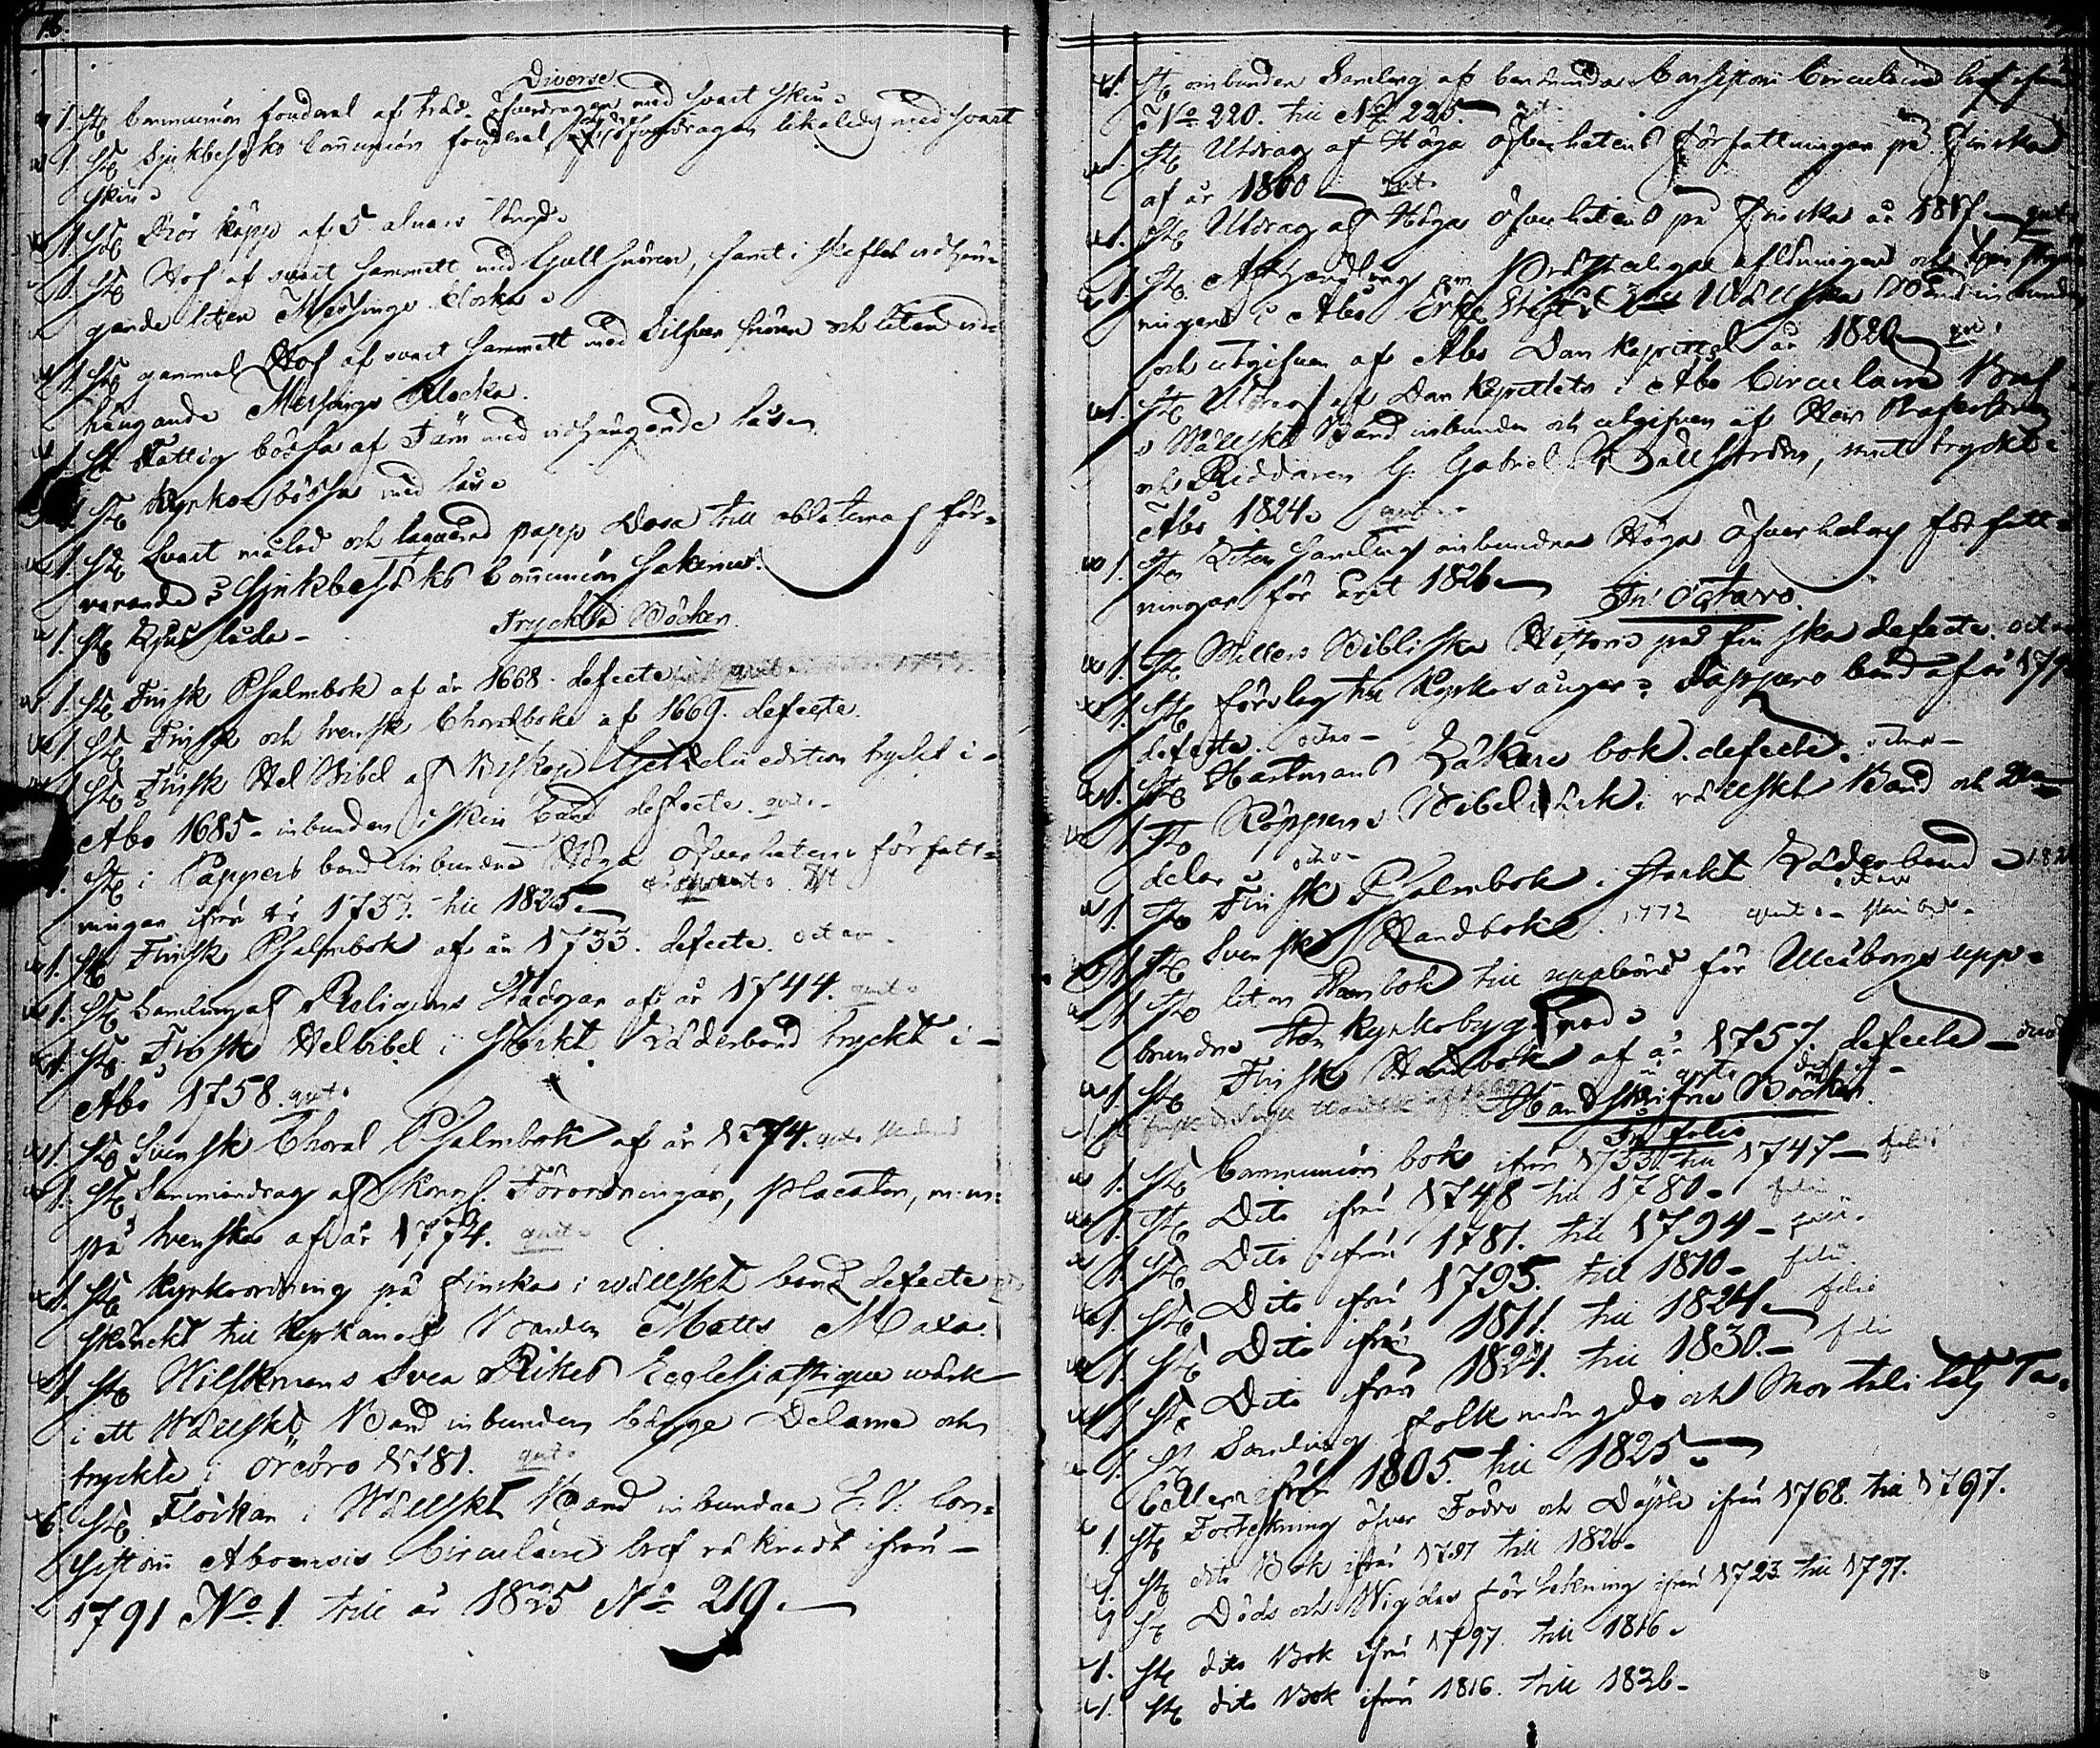 Diverse
1. st Communion fouderal af träd öfverdragen med svart skin
1. st Sjukbesöks Communion fouderal öfverdragen likaledes med svart
skin
1. st Rör käpp af 5 alnars längd
1. st Hof af svart sammett med Gull snören, samt i skaftet vidhän-
gande liten Messings klocka
1. st gammal Hof af svart sammett med Silfver snören och liten vid-
hängande Messings klocka.
1. st Fattig bössa af Järn med vidhängande lås
st Kyrko bössa med lås
1. st Svart målad och laquerad papp Dosa till oblaternas för-
varande i Sjukbesöks Communion sakerna.
1. st Ljus låda - Tryckta Böcker.
1. st Finsk Psalmbok af år 1668. defecte qvit
1. st Finsk och Svensk Choralboke af 1669. defecte.
1. st Finsk Hel Bibel af Biskop Gezelii edition tryckt i
Abo 1685 - inbunden i skin band defecte. qvt
st i Pappers band inbundne Höga Öfverhetens författ-
ningar ifrån år 1733. till 1825
1. st Finsk Psalmbok af år 1733. defecte. octav
1. st Samling af Religions Stadgar af år 1744. qvit
1. st Finsk Helbibel i starkt Läderband tryckt i -
Abo 1758. qvt
1. st Svensk Choral Psalmbok af år 1774. qvt
1. st Sammandrag af Kongl. Förordningar, Placater, m: m:
på svenska af år 1774. qvit
1. st Kyrkoordning på finska i wällskt band defecte
skänckt till kyrkan af Bonden Matts Maxa.
1. st Wilskmans Svea Rikes Ecclesiastique wärk
i ett Wällskt Band inbunden bägge Delarne och
tryckte i Örebro 1781. qvt
6 st Flockar i Wällskt Band inbundna E. V. Con-
sistorii Aboensis Circulaire bref räknadt ifrån -
1791 No. 1 till år 1825 No. 219.
1. st oinbunden Samling af Consistorii Circulaire bref ifrån
No 220. till No 225. qvt
1 st Utdrag af Höga Öfverhetens Författningar på Finska
af år 1800 qvt.
1. st Utdrag af Höga Öfverhetens på Finska år 1817 qvt
1 st. Afhandling om Prästerliga aflöningen och
ningen i Abo Erke Stift i Wällska Band inbunden
och utgifven af Abo Dom Kapitel år 1820 qvt.
1 st Utdrag af Dom Kapitlets i Abo Circulaire Bref
i Wällskt Band inbunden och utgifven af Herr Professoren
och Riddaren G. Gabriel Hällström, samt tryckt i
Abo 1824. qvt
1. st Liten Samling oinbundna Höga Öfverhetens författ-
ningar för året 1826 In Octavo.
1. st Müllers Bibliska Historie på finska defecte. oct
1. st förslag till Kyrkosånger i Pappers band af år 179
defecte. octvo -
1. st Hartmans Läkare bok. defecte. octav -
1 st Röppens Bibelvärk i wällskt Band och 20
delar octvo -
1. st Finsk Psalmbok i starkt Läderband 182
1. st Svensk Handbok. 1772 qvt
1 st liten Räm bok till uppbörd för Uleåborgs upp-
brundna Kyrkobyggnad
1 st Finsk Handbok af år 1757. defecte
Handskrifne Böcker.
In folio
1. st Communion bok ifrån 1733. till 1747 - folio
1. st Dito ifrån 1748 till 1780 - folio
1. st Dito ifrån 1781. till 1794 - folio.
1. st Dito ifrån 1795. till 1810 - folio
1 st Dito ifrån 1811. till 1824. folio
1 st Dito ifrån 1824. till 1830. - folio
1. st Samling folkmängds och Mortalitets Ta-
beller ifrån 1805. till 1825.
1. st Förtekning öfver Födde och Döpte ifrån 1768. till 1797.
1. st dito Bok ifrån 1797 till 1826
1 st Döds och Wigdes förtekning ifrån 1723 till 1797.
1. st dito Bok ifrån 1797. till 1816.
1. st dito Bok ifrån 1816. till 1826 -